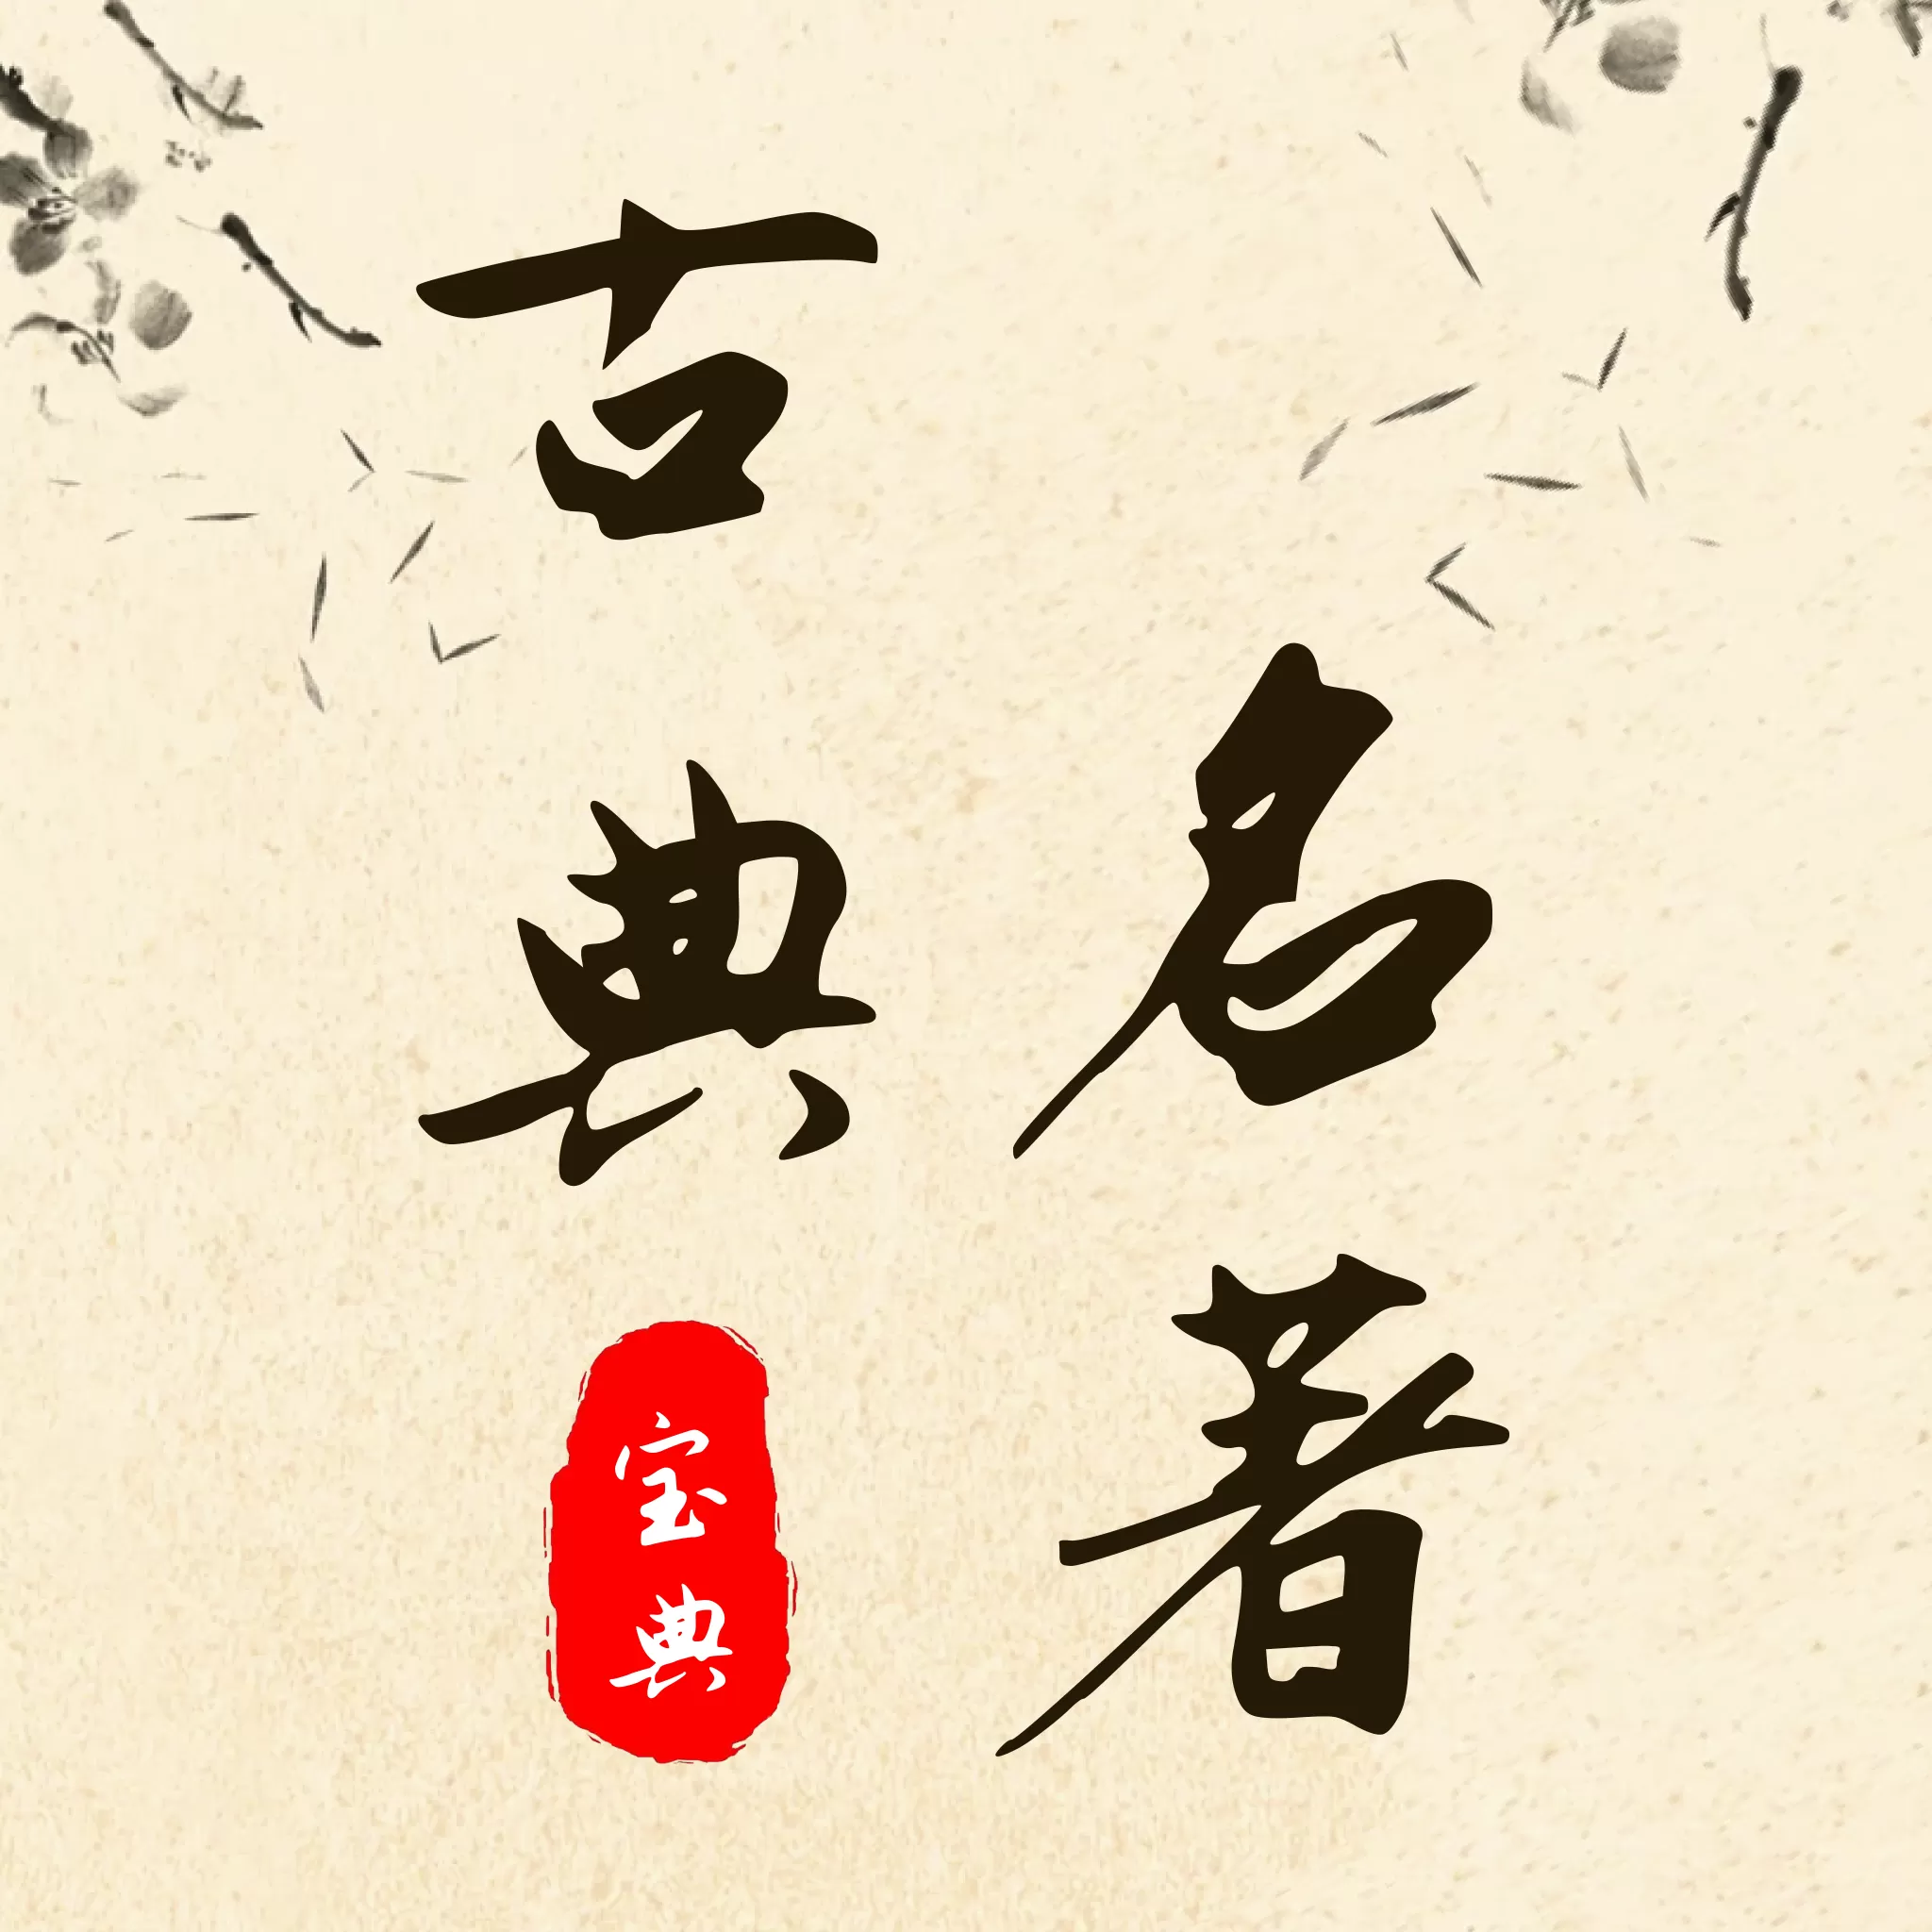 古典
名著
宝典